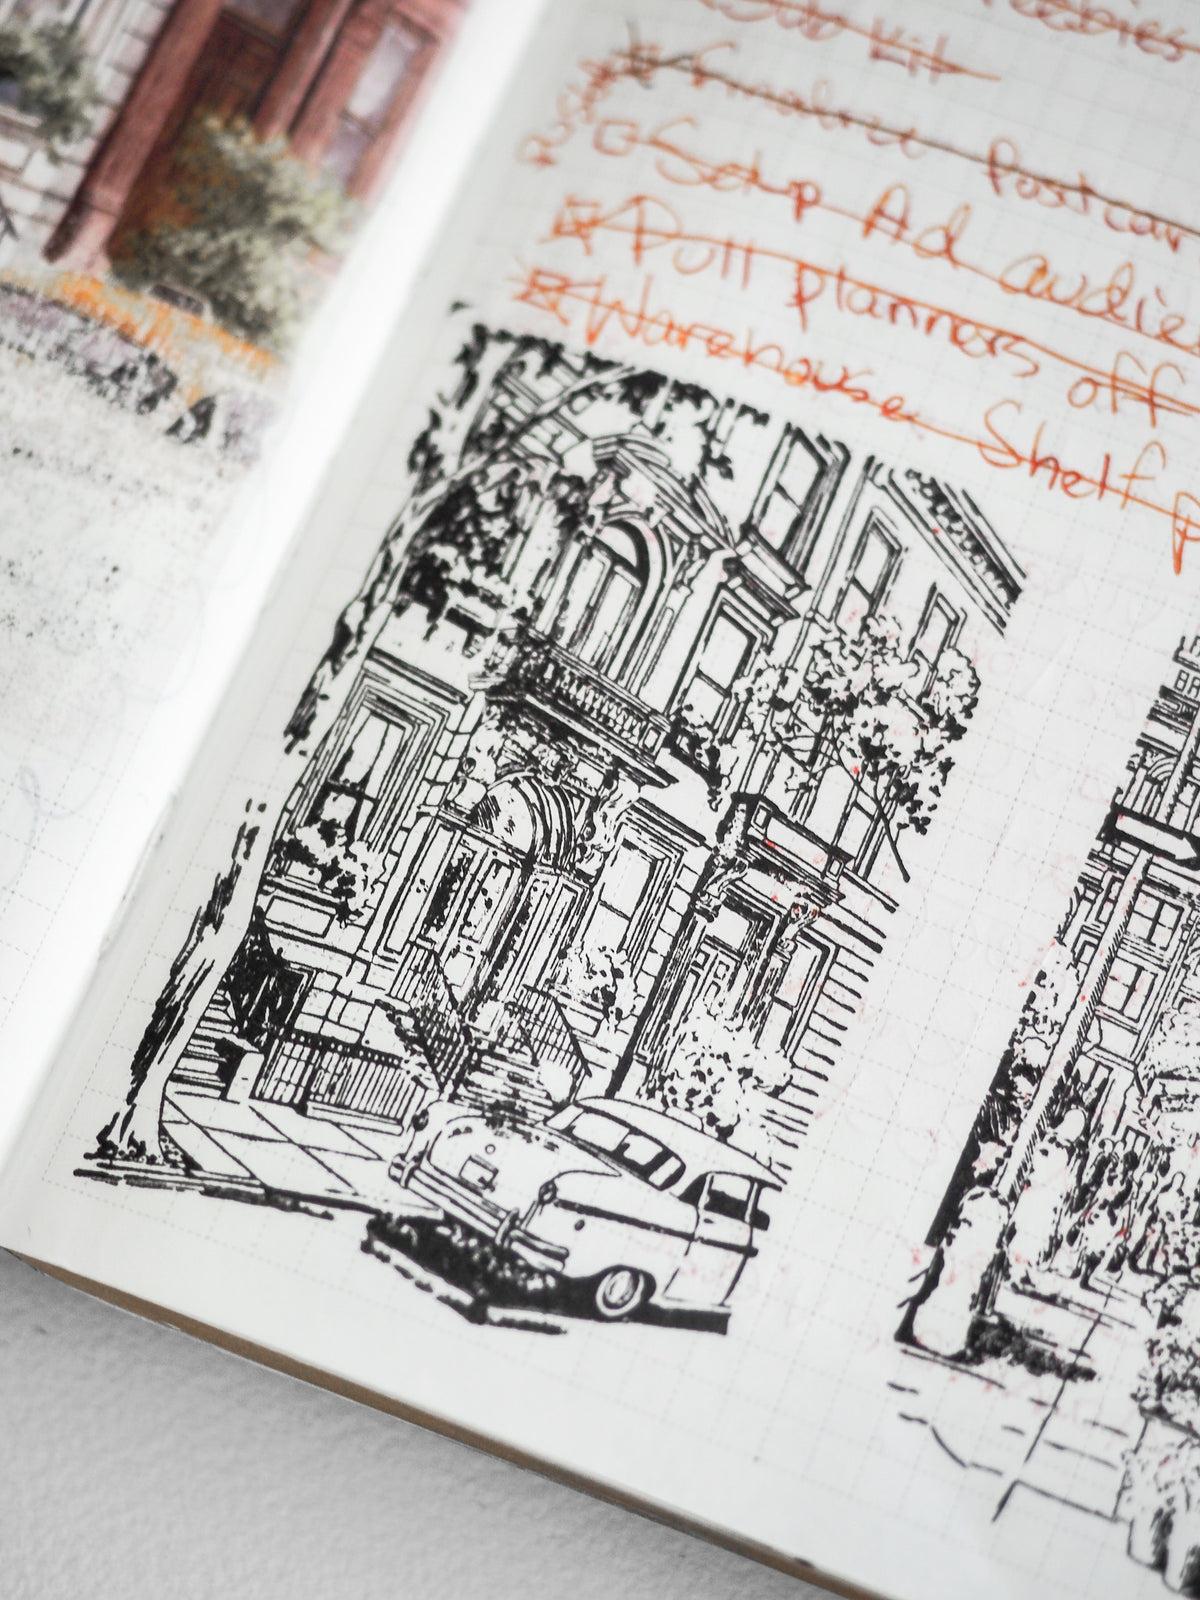 Kit
Finalize Postcar
Setup Ad audie
Pull planners off
Warehouse Shelf p